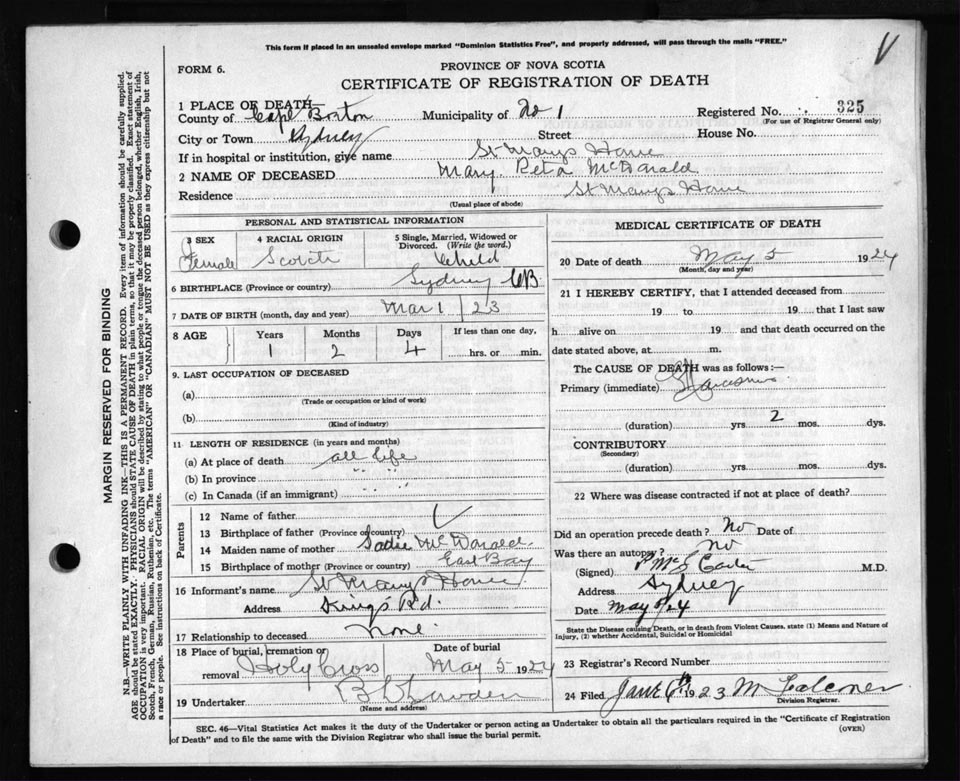 This form if placed in an unsealed envelope marked "Dominion Statistics Free", and properly addressed, will pass through the mails "FREE."
V
FORM 6.
PROVINCE OF NOVA SCOTIA
CERTIFICATE OF REGISTRATION OF DEATH
1 PLACE OF DEATH—
County of Cape Breton Municipality of No 1 Registered No. 325
(For use of Registrar General only)
City or Town Sydney Street House No.
If in hospital or institution, give name St Marys Home
2 NAME OF DECEASED Mary. Reta McDonald
Residence St Marys Home
(Usual place of abode)
PERSONAL AND STATISTICAL INFORMATION
3 SEX 4 RACIAL ORIGIN 5 Single, Married, Widowed or Divorced. (Write the word.)
Female Scotch Child
6 BIRTHPLACE (Province or country) Sydney CB
7 DATE OF BIRTH (month, day and year) Mar 1 / 23
8 AGE Years Months Days If less than one day,
1 2 4 hrs. or min.
9. LAST OCCUPATION OF DECEASED
(a)
(Trade or occupation or kind of work)
(b)
(Kind of industry)
11 LENGTH OF RESIDENCE (in years and months)
(a) At place of death all life
(b) In province " "
(c) In Canada (if an immigrant) " "
Parents
12 Name of father
13 Birthplace of father (Province or country)
14 Maiden name of mother Sadie McDonald
15 Birthplace of mother (Province or country) East Bay
16 Informant's name St Marys Home
Address Kings Rd.
17 Relationship to deceased None
18 Place of burial, cremation or removal Date of burial
Holy Cross May 5 1924
19 Undertaker
(Name and address)
MEDICAL CERTIFICATE OF DEATH
20 Date of death May 5 1924
(Month, day and year)
21 I HEREBY CERTIFY, that I attended deceased from
19 to 19 that I last saw
h alive on 19 and that death occurred on the
date stated above, at m.
The CAUSE OF DEATH was as follows:—
Primary (immediate)
(duration) yrs. 2 mos. dys.
CONTRIBUTORY
(Secondary)
(duration) yrs. mos. dys.
22 Where was disease contracted if not at place of death?
Did an operation precede death? No Date of
Was there an autopsy? no
(Signed) M.D.
Address Sydney
Date May 5/24
State the Disease causing Death, or in death from Violent Causes, state (1) Means and Nature of Injury, (2) whether Accidental, Suicidal or Homicidal
23 Registrar's Record Number
24 Filed June 6th 1923 M Falconer
Division Registrar.
SEC. 46—Vital Statistics Act makes it the duty of the Undertaker or person acting as Undertaker to obtain all the particulars required in the "Certificate of Registration
of Death" and to file the same with the Division Registrar who shall issue the burial permit.
(OVER)
MARGIN RESERVED FOR BINDING
N.B.—WRITE PLAINLY WITH UNFADING INK—THIS IS A PERMANENT RECORD. Every item of information should be carefully supplied.
AGE should be stated EXACTLY. PHYSICIANS should STATE CAUSE OF DEATH in plain terms, so that it may be properly classified. Exact statement of
OCCUPATION is very important. RACIAL ORIGIN will be described by stating to what people or tongue the deceased person belonged, whether English, Irish,
Scotch, French, German, Russian, Ruthenian, etc. The terms "AMERICAN" OR "CANADIAN" MUST NOT BE USED as they express citizenship but not
a race or people. See instructions on back of Certificate.